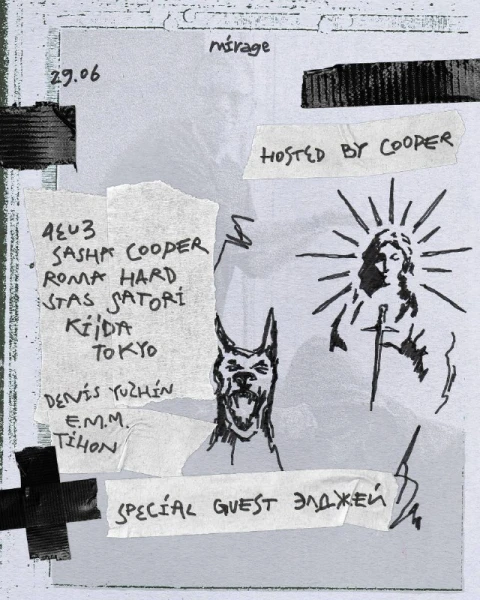 mirage
29.06
HOSTED BY COOPER
4EU3
SASHA COOPER
ROMA HARD
STAS SATORI
KIJDA
TOKYO
DENIS YUZHIN
E.M.M.
TIHON
SPECIAL GUEST ЭЛДЖЕЙ